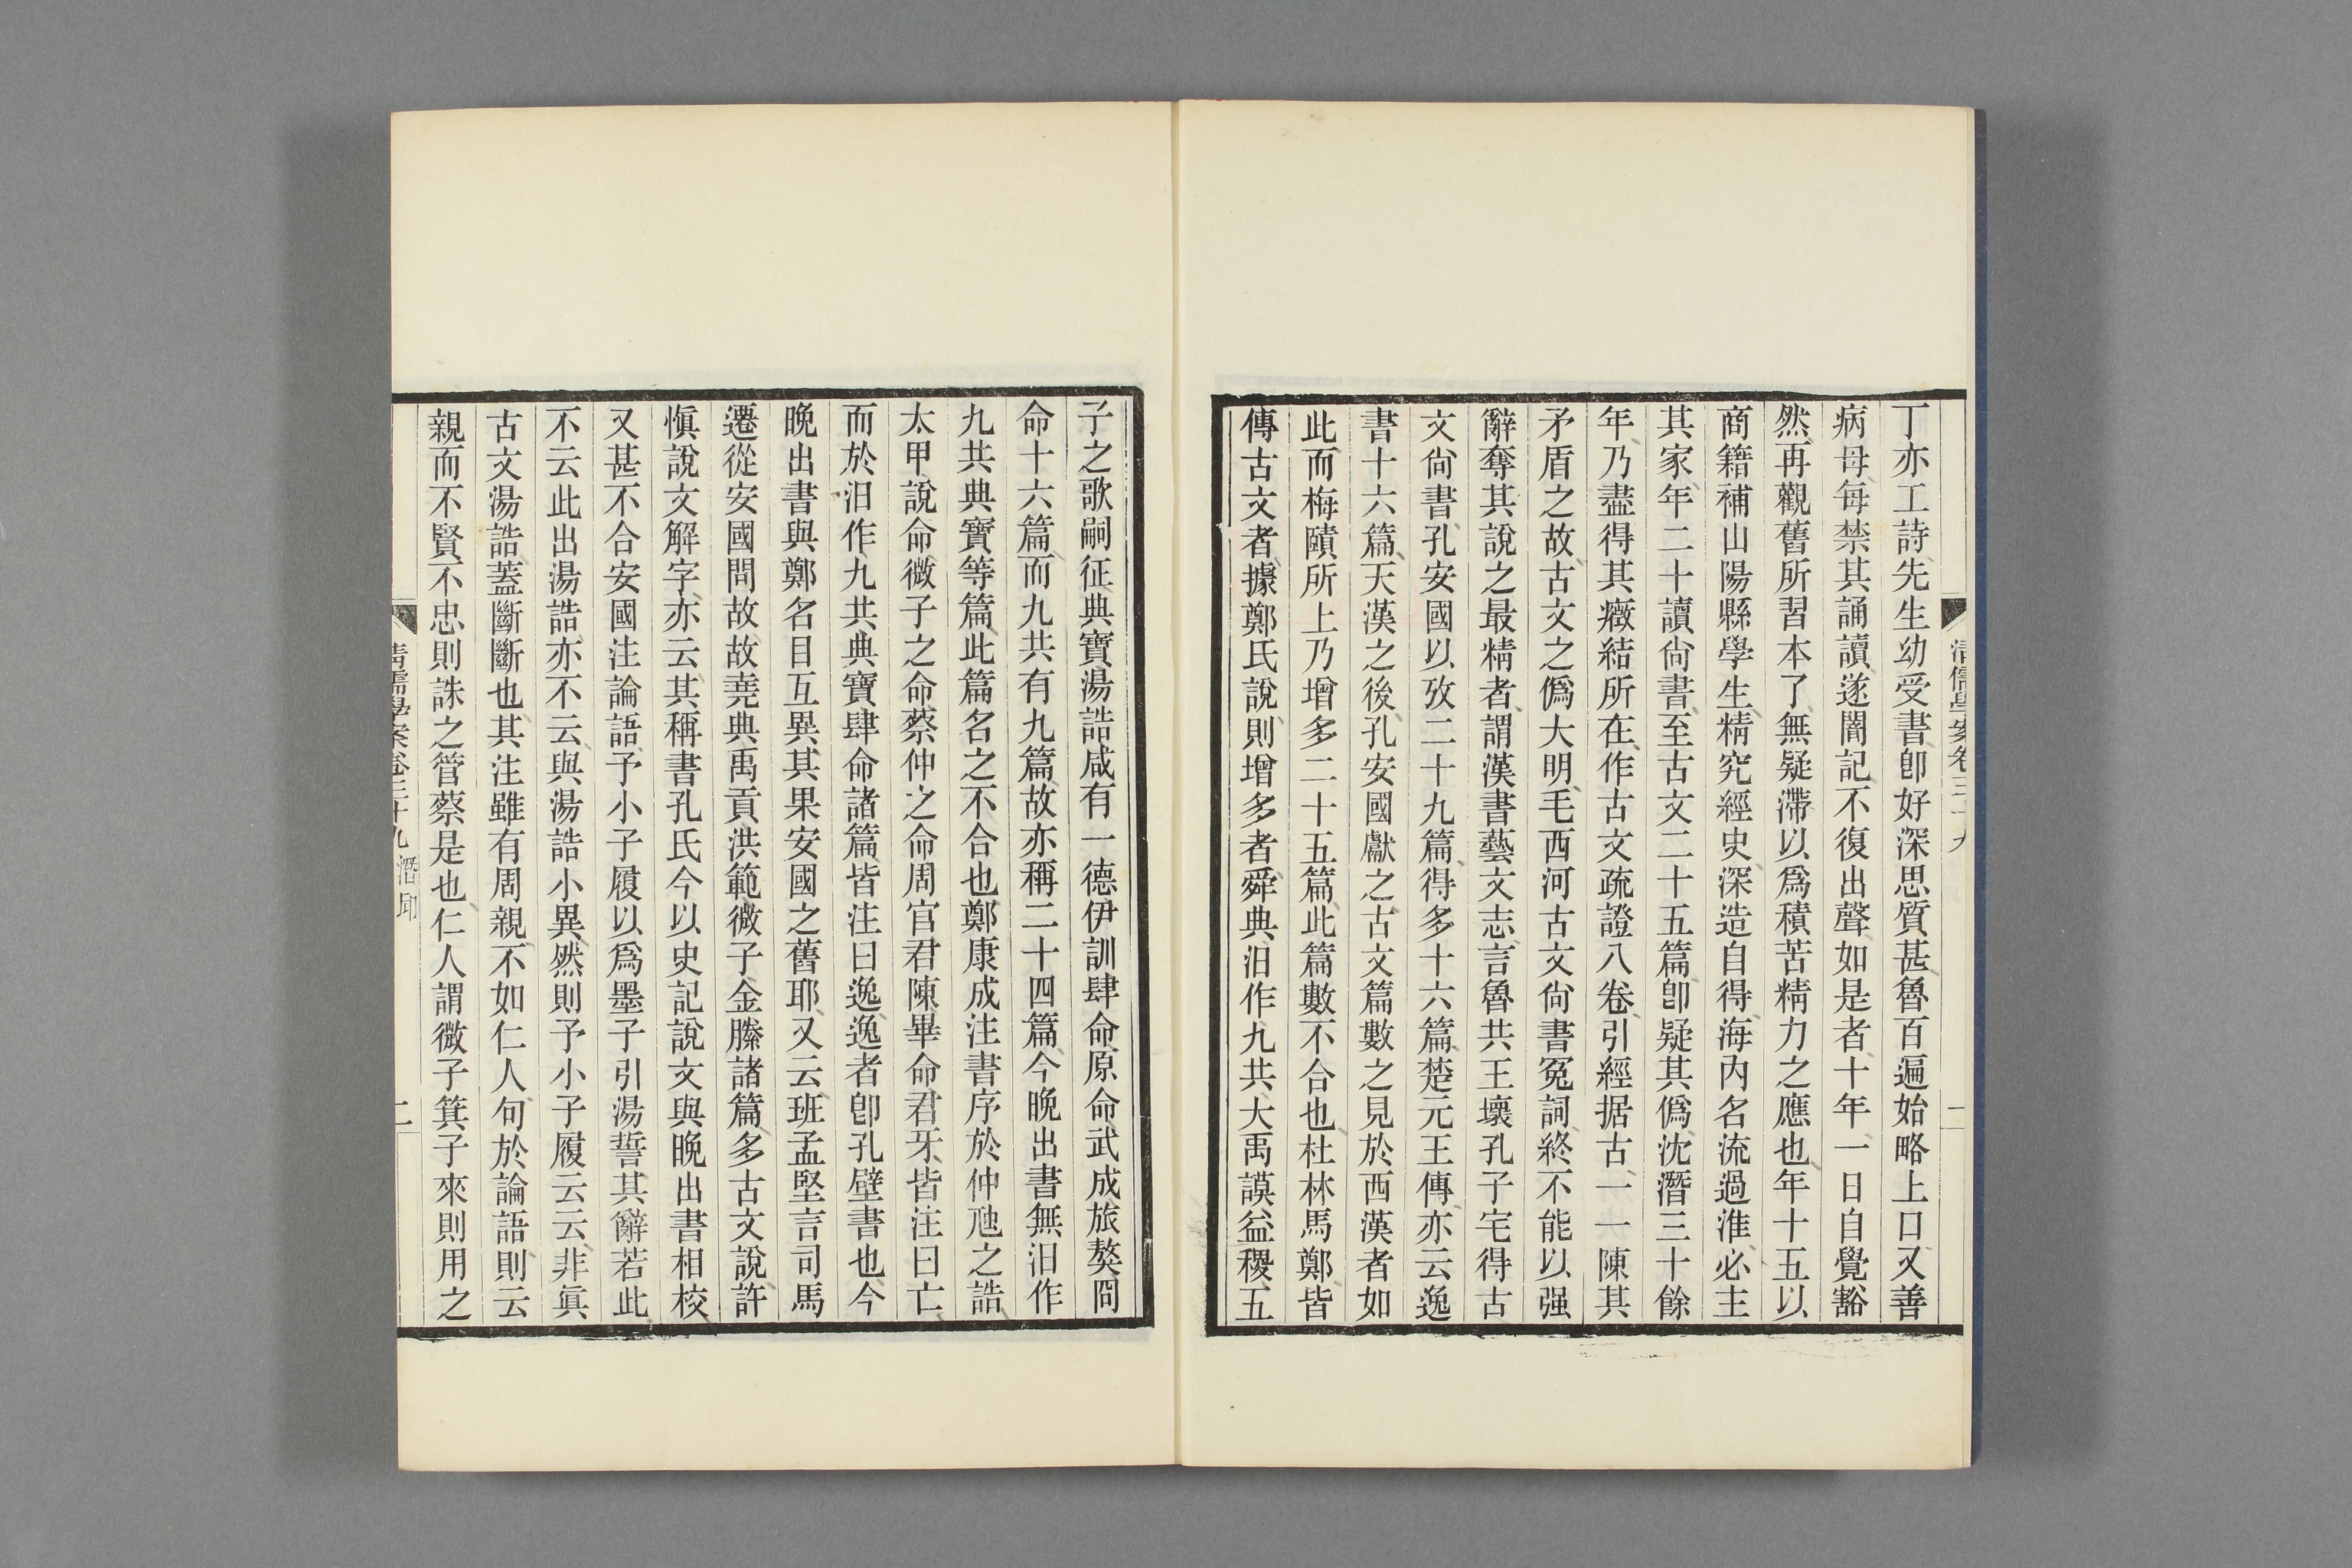 清儒學案卷三十九
一
丁亦工詩先生幼受書卽好深思質甚魯百遍始略上口又善
病母每禁其誦讀遂闇記不復出聲如是者十年一日自覺豁
然再觀舊所習本了無疑滯以爲積苦精力之應也年十五以
商籍補山陽縣學生精究經史深造自得海內名流過淮必主
其家年二十讀尙書至古文二十五篇卽疑其僞沈潛三十餘
年乃盡得其癥結所在作古文疏證八卷引經据古一一陳其
矛盾之故古文之僞大明毛西河古文尙書冤詞終不能以强
辭奪其說之最精者謂漢書藝文志言魯共王壞孔子宅得古
文尙書孔安國以攷二十九篇得多十六篇楚元王傳亦云逸
書十六篇天漢之後孔安國獻之古文篇數之見於西漢者如
此而梅賾所上乃增多二十五篇此篇數不合也杜林馬鄭皆
傳古文者據鄭氏說則增多者舜典汨作九共大禹謨益稷五
子之歌嗣征典寶湯誥咸有一德伊訓肆命原命武成旅獒冏
命十六篇而九共有九篇故亦稱二十四篇今晚出書無汨作
九共典寶等篇此篇名之不合也鄭康成注書序於仲虺之誥
太甲說命微子之命蔡仲之命周官君陳畢命君牙皆注曰亡
而於汨作九共典寶肆命諸篇皆注曰逸逸者卽孔壁書也今
晚出書與鄭名目互異其果安國之舊耶又云班孟堅言司馬
遷從安國問故故堯典禹貢洪範微子金縢諸篇多古文說許
愼說文解字亦云其稱書孔氏今以史記說文與晚出書相校
又甚不合安國注論語予小子履以爲墨子引湯誓其辭若此
不云此出湯誥亦不云與湯誥小異然則予小子履云云非眞
古文湯誥蓋斷斷也其注雖有周親不如仁人句於論語則云
親而不賢不忠則誅之管蔡是也仁人謂微子箕子來則用之
清儒學案卷三十九 潛邱
二